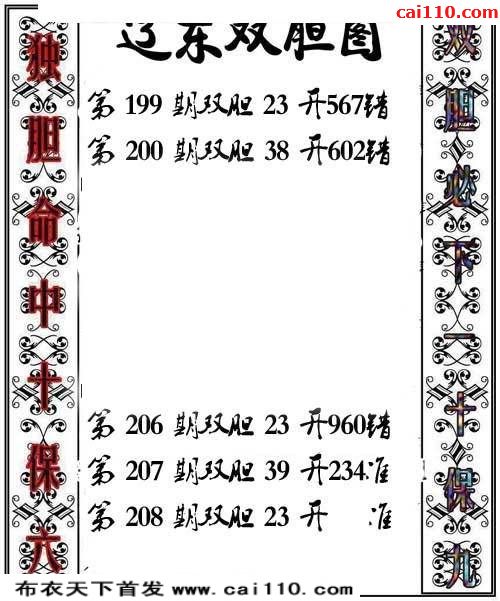 cai110.com
辽东双胆图
独胆命中十保六
第 199 期双胆 23 开567错
第 200 期双胆 38 开602错
第 206 期双胆 23 开960错
第 207 期双胆 39 开234准
第 208 期双胆 23 开 准
双胆必下一十保九
布衣天下首发 www.cai110.com